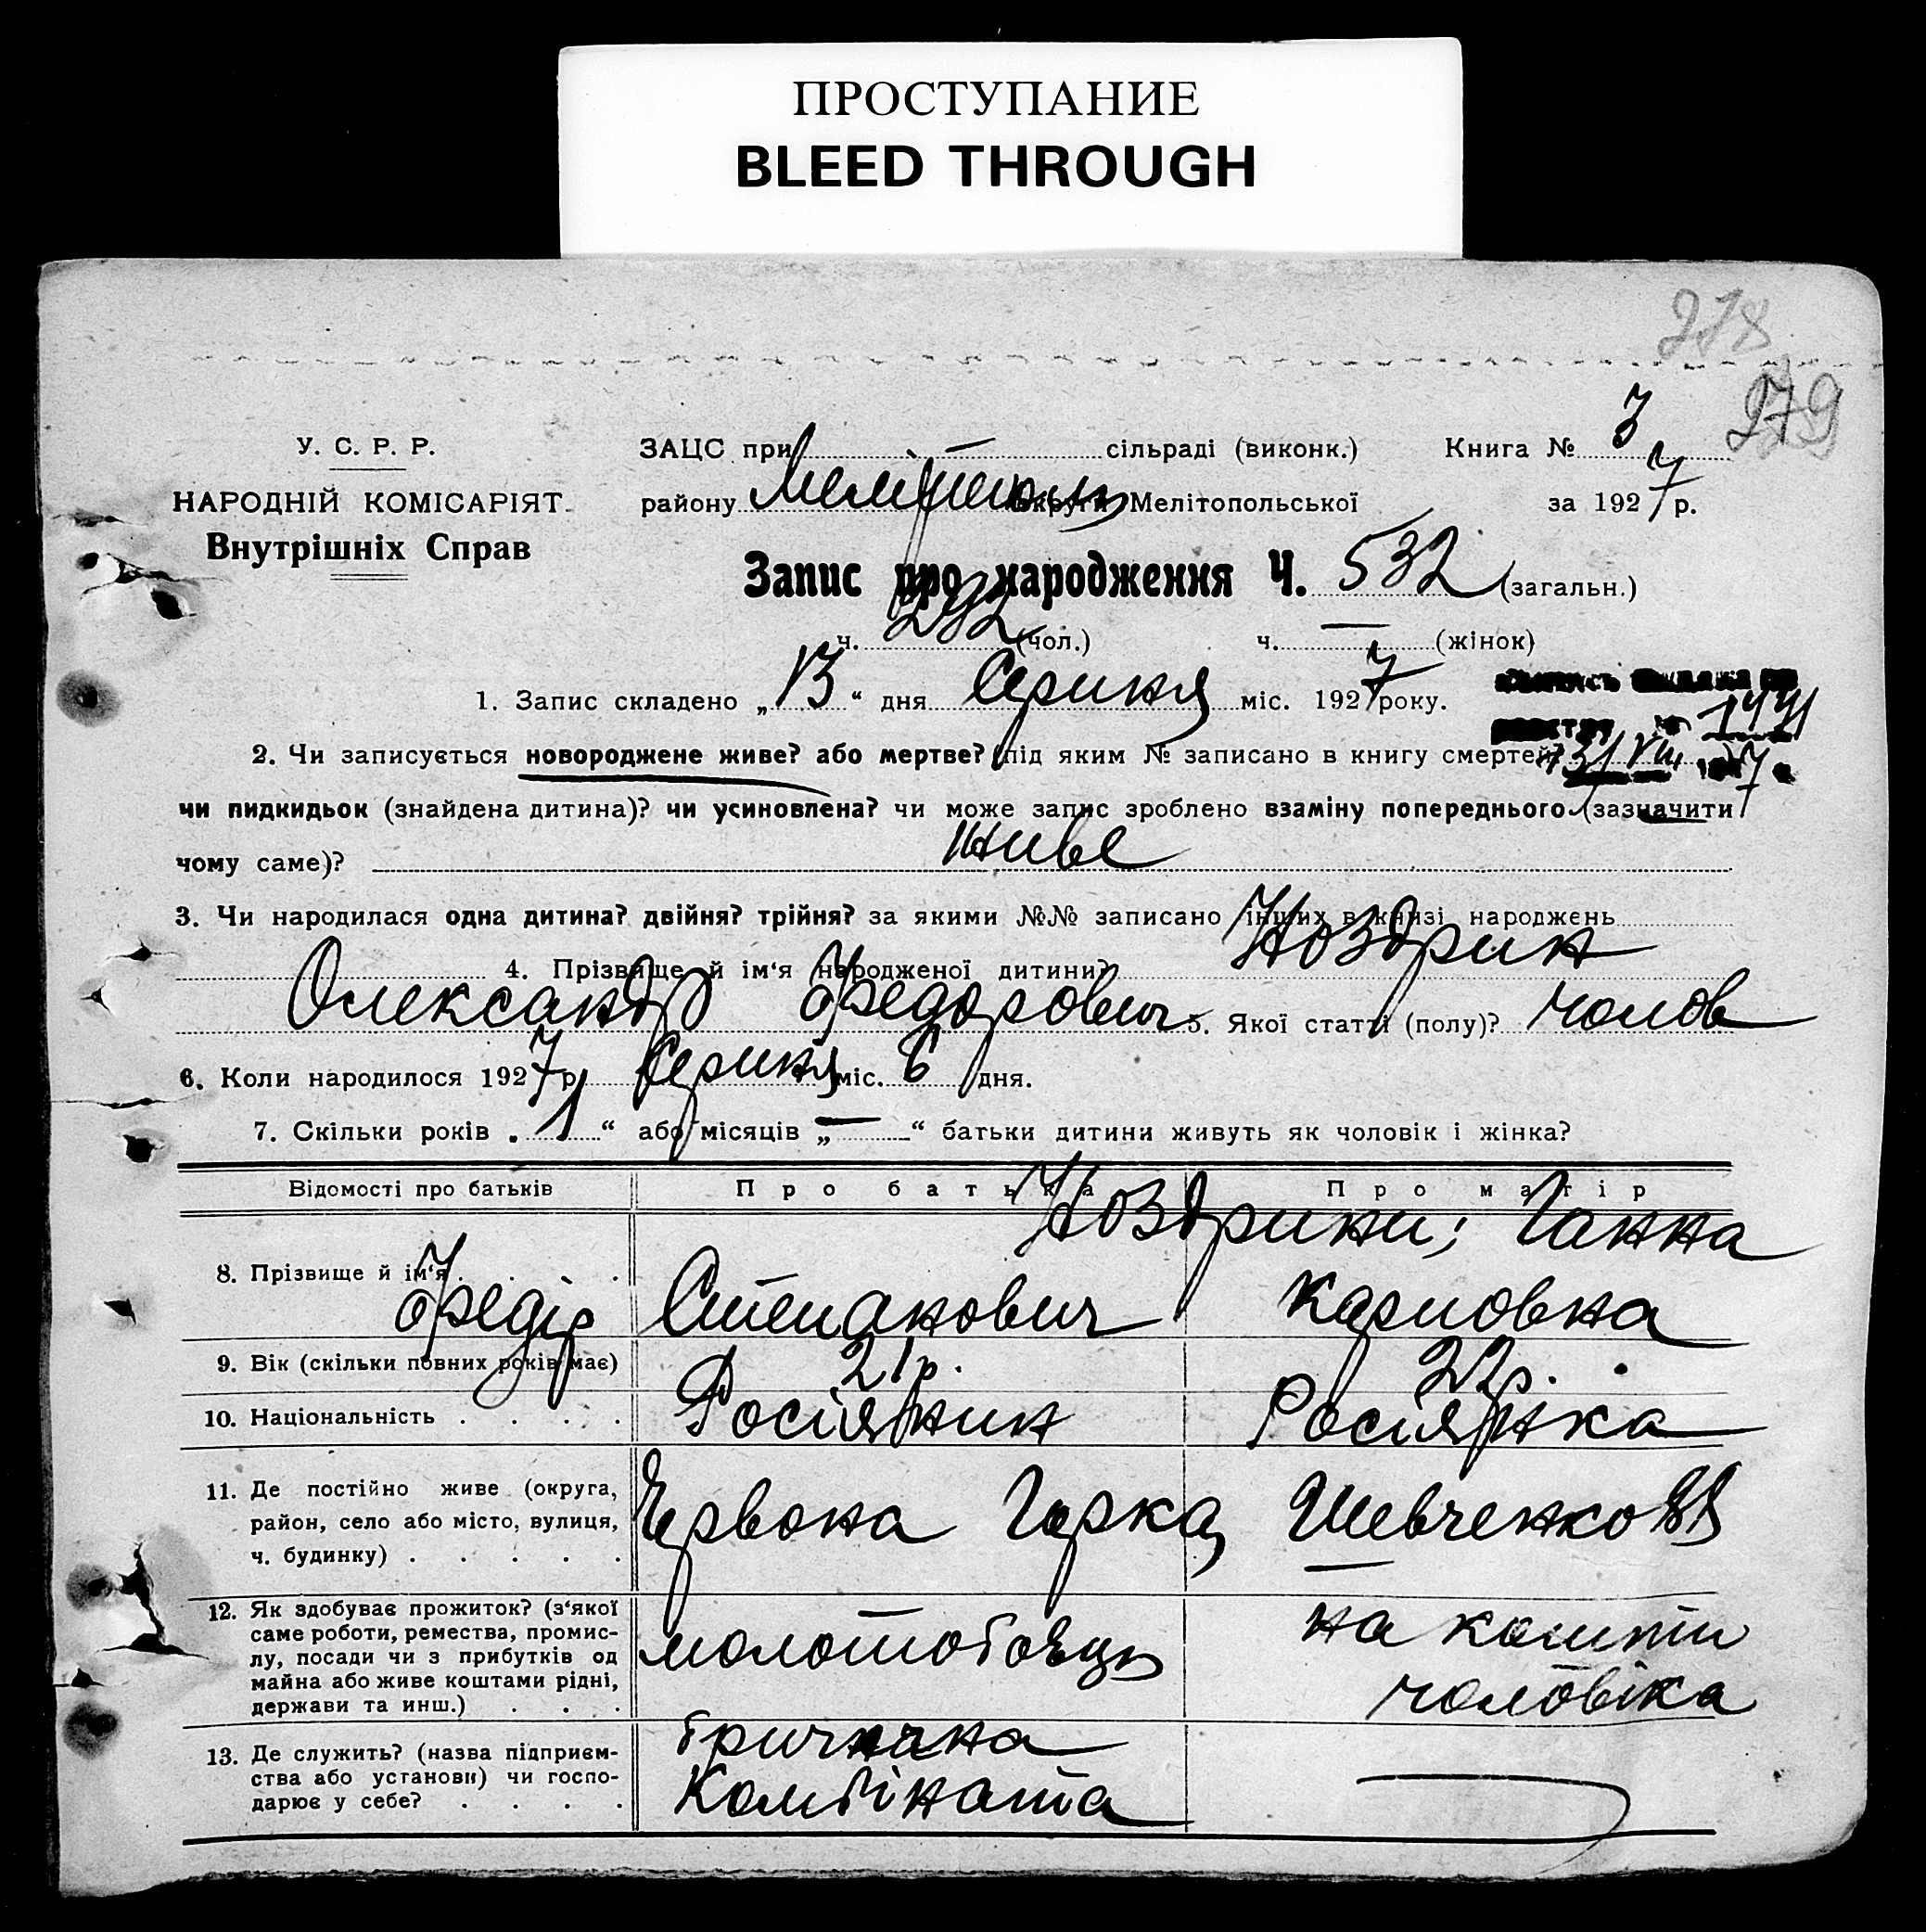 ПРОСТУПАНИЕ
BLEED THROUGH
278
279
У. С. Р. Р.
НАРОДНІЙ КОМІСАРІЯТ
Внутрішніх Справ
ЗАЦС при — сільраді (виконк.) Книга № 3
району Мелітополь округи Мелітопольської за 1927 р.
Запис про народження Ч. 532 (загальн.)
ч. 292 (чол.) ч. — (жінок)
1. Запис складено „13“ дня Серпня міс. 1927 року.
1441
2. Чи записується новороджене живе? або мертве? (під яким № записано в книгу смертей? 31 VIII 7
чи пидкидьок (знайдена дитина)? чи усиновлена? чи може запис зроблено взаміну попереднього (зазначити
чому саме)? живе
3. Чи народилася одна дитина? двійня? трійня? за якими №№ записано інших в книзі народжень
4. Прізвище й ім‘я народженої дитини? Ноздрин
Олександр Федорович 5. Якої статті (полу)? чолов
6. Коли народилося 1927 р. Серпня міс. 6 дня.
7. Скільки років „1“ або місяців „—“ батьки дитини живуть як чоловік і жінка?
Відомості про батьків Про батька Про матір
Ноздрини; Ганна
8. Прізвище й ім‘я . . . Федір Степанович Карповна
9. Вік (скільки повних років має) 21 р. 22 р.
10. Національність . . . . Росіянин Росіянка
11. Де постійно живе (округа,
район, село або місто, вулиця,
ч. будинку) . . . . .
Червона Горка, Шевченко 88
12. Як здобуває прожиток? (з‘якої
саме роботи, ремества, промис-
лу, посади чи з прибутків од
майна або живе коштами рідні,
держави та инш.) . . .
молотобоєць
на кошти
чоловіка
13. Де служить? (назва підприєм-
ства або установи) чи госпо-
дарює у себе? . . . .
Комбіната